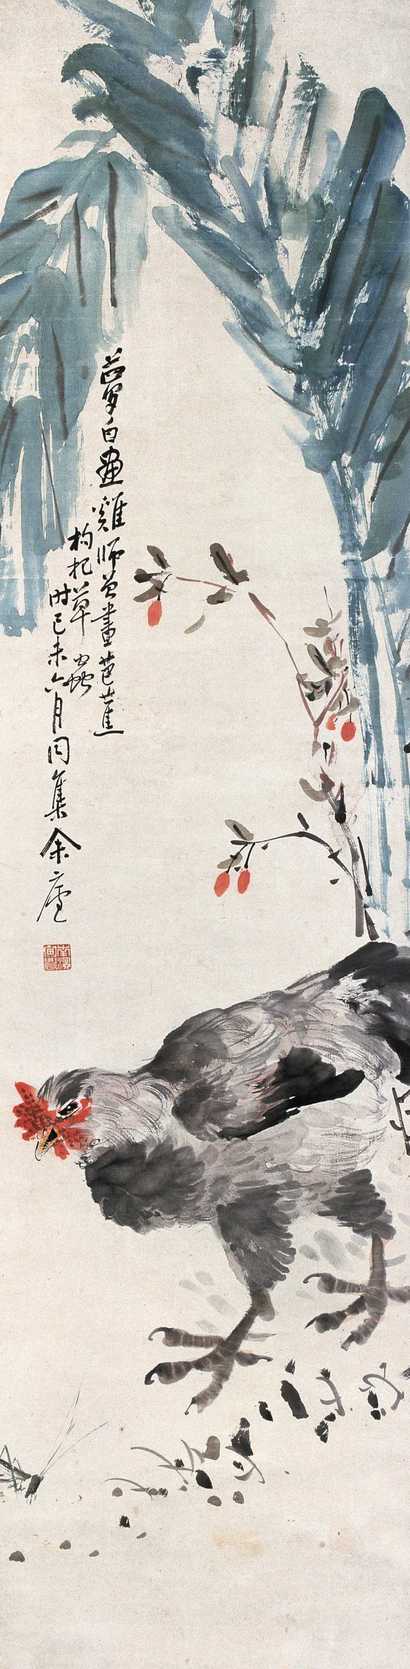 夢白畫雞師曾畫芭蕉
枸杞草蟲
時己未六月同集余廬